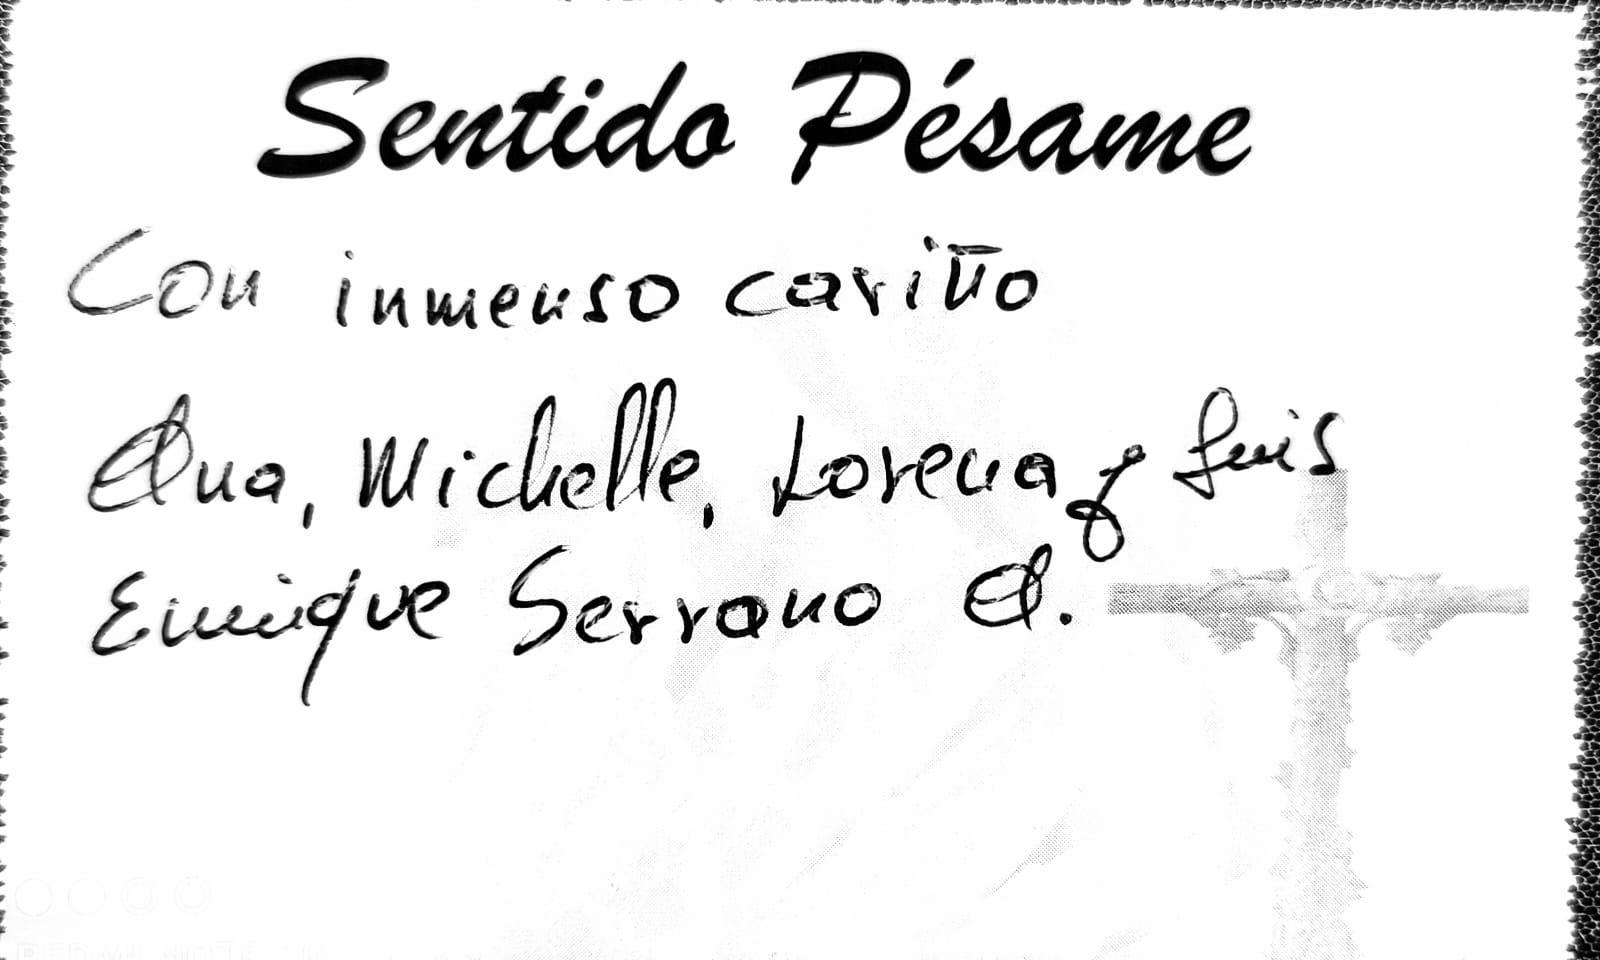 Sentido Pésame
Con inmenso cariño
Ana, Michelle, Lorena y Luis
Enrique Serrano A.